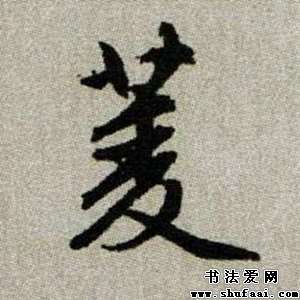 菱
书法爱网
www.shufaai.com